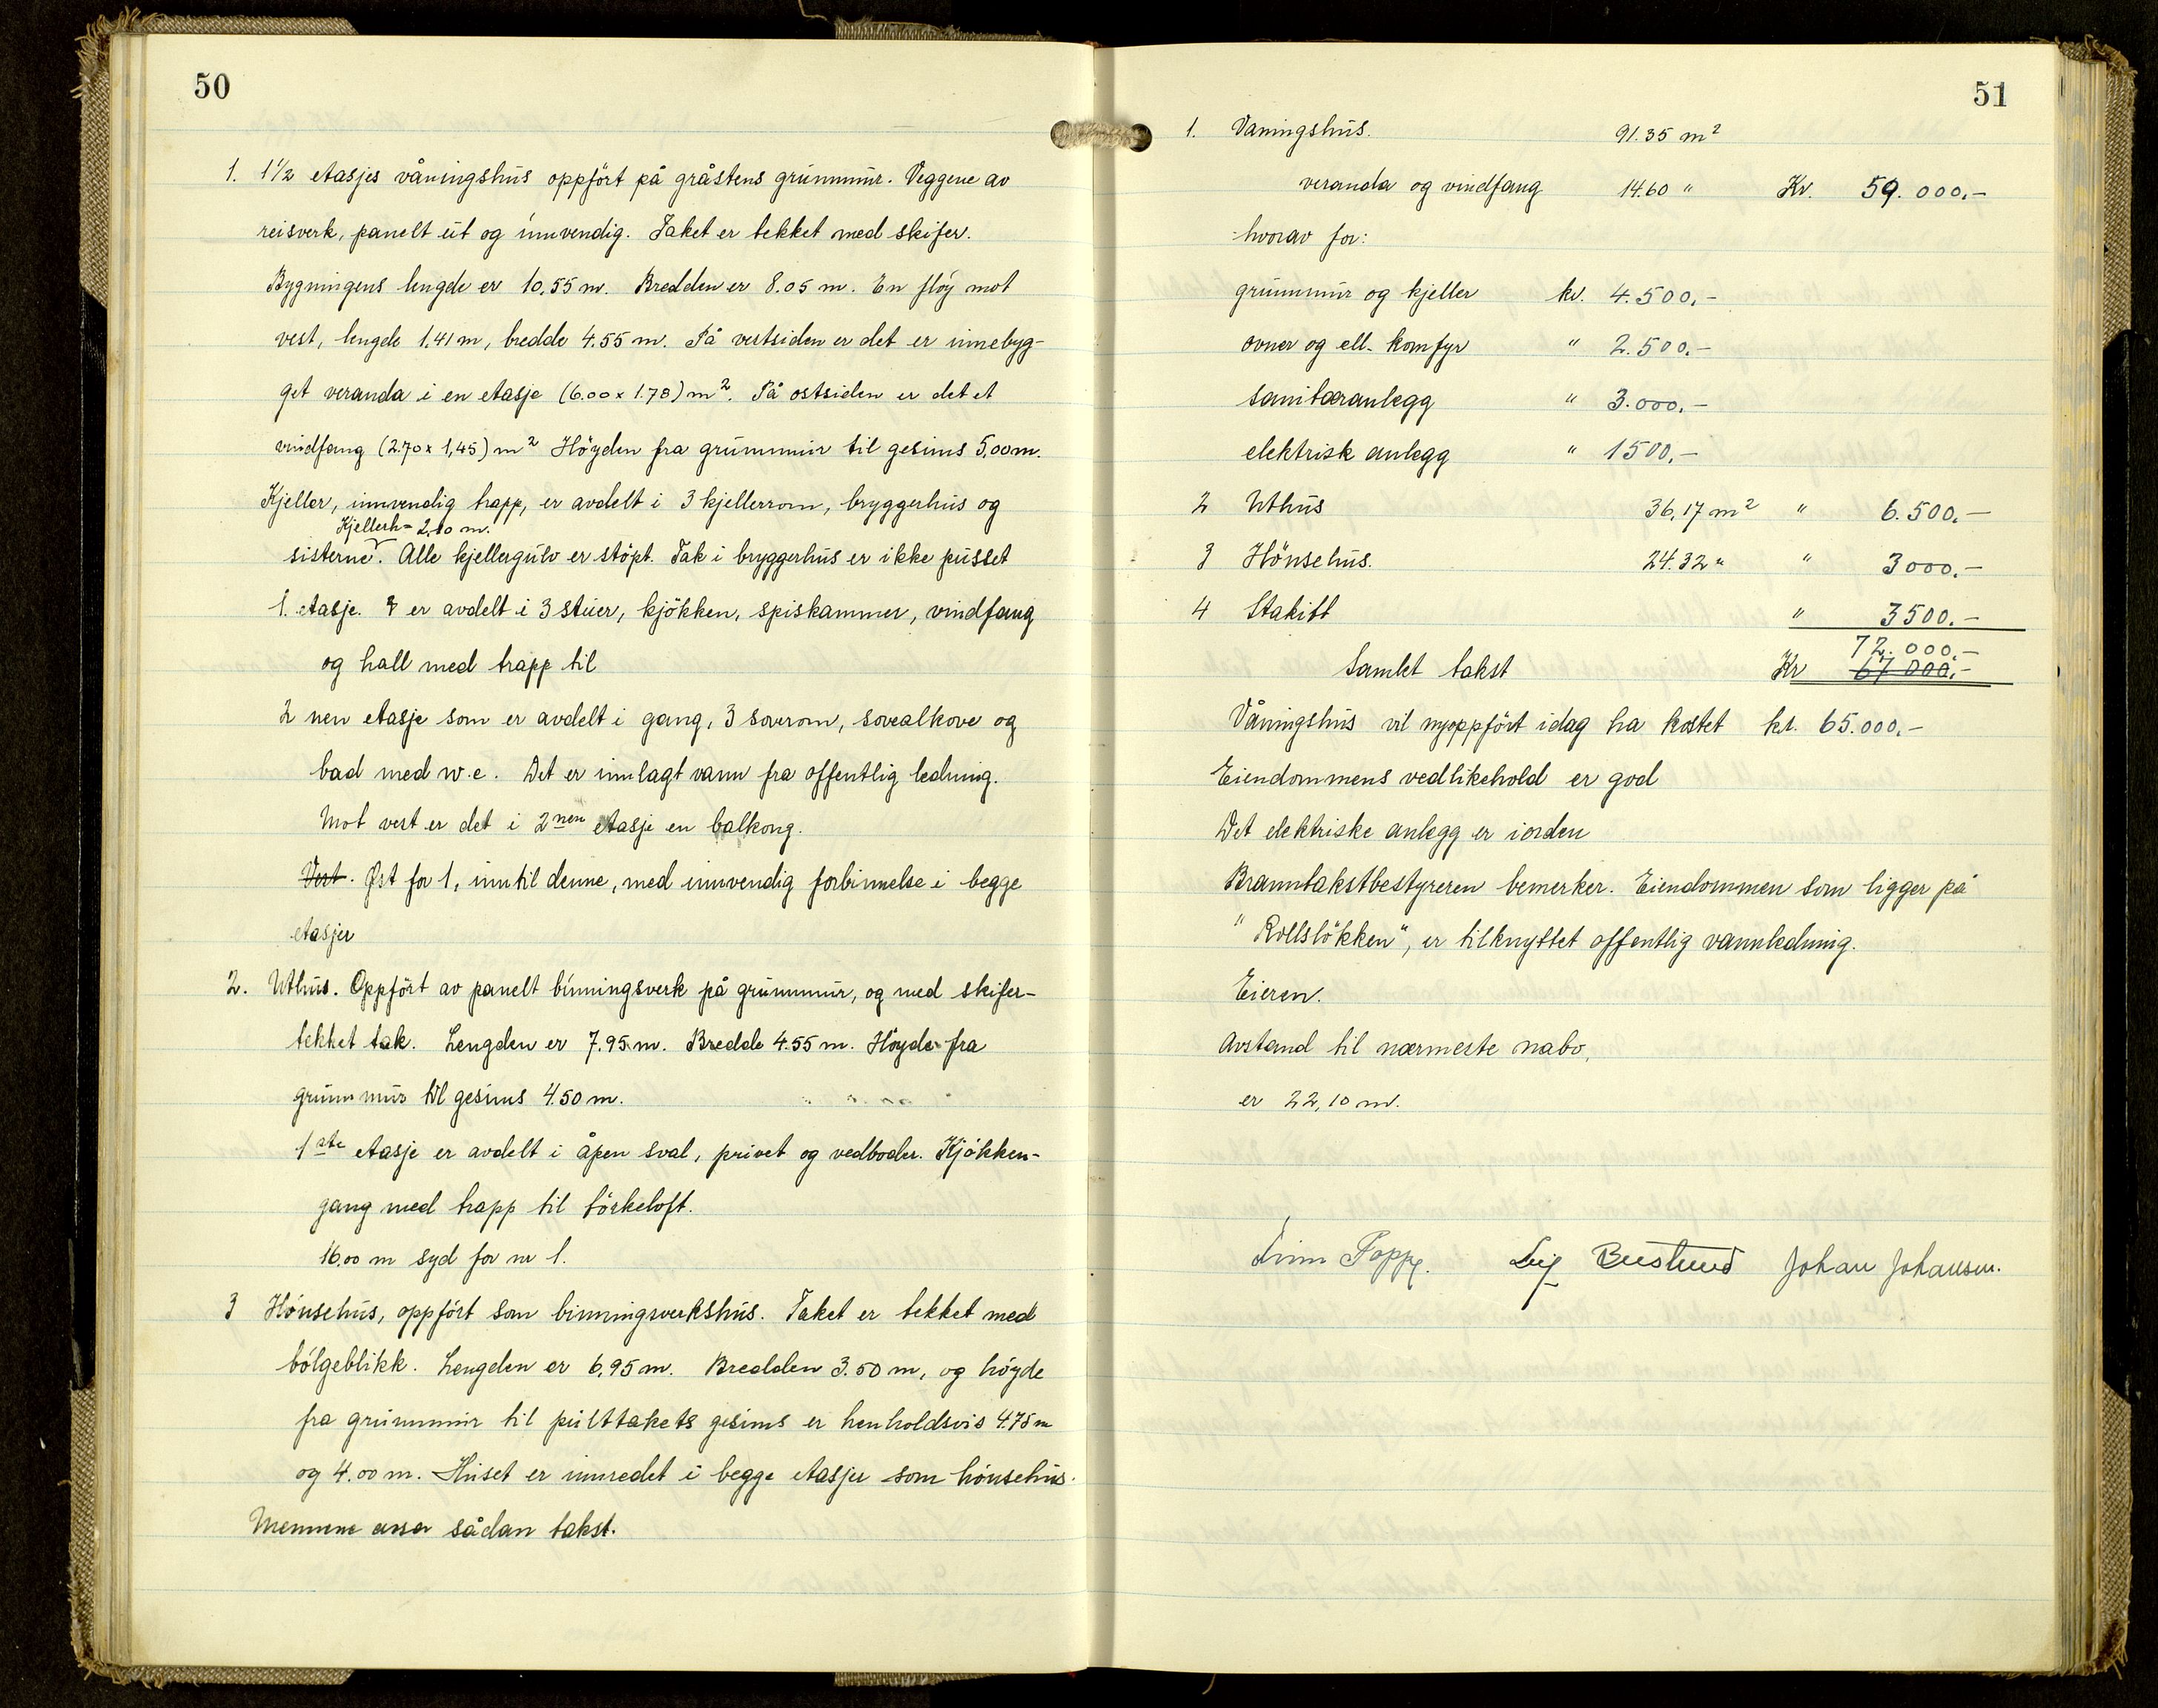 50
1. 1½ etasjes våningshus oppfört på gråstens grunnmur. Veggene av
reisverk, panelt ut og innvendig. Taket er tekket med skifer.
Bygningens lengde er 10,55 m. Bredden er 8.05 m. En flöy mot
vest, lengde 1,41 m, bredde 4.55 m. På vestsiden er det er innebyg-
get veranda i en etasje (6.00 x 1.78) m². På ostsiden er det et
vindfang (2.70 x 1,45) m² Höyden fra grunnmur til gesims 5,00 m.
Kjeller, innvendig trapp, er avdelt i 3 kjellerrom, bryggerhus og
Kjellerh = 2,10 m.
sisterne. Alle kjellergulv er stöpt. Tak i bryggerhus er ikke pusset
1. etasje. er avdelt i 3 stuer, kjökken, spiskammer, vindfang
og hall med trapp til
2 nen etasje som er avdelt i gang, 3 soverom, sovealkove og
bad med w.c. Det er innlagt vann fra offentlig ledning.
Mot vest er det i 2nen etasje en balkong.
Vest. Öst for 1, inntil denne, med innvendig forbinnelse i begge
etasjer
2. Uthus. Oppfört av panelt binningsverk på grunnmur, og med skifer-
tekket tak. Lengden er 7.95 m. Bredde 4.55 m. Höyde fra
grunnmur til gesims 4.50 m.
1ste etasje er avdelt i åpen sval, privet og vedboder. Kjökken-
gang med trapp til törkeloft.
16,00 m syd for nr 1.
3 Hönsehus, oppfört som binningsverkshus. Taket er tekket med
bölgeblikk. Lengden er 6,95 m. Bredden 3.50 m, og höyde
fra grunnmur til pulttakets gesims er henholdsvis 4.75 m
og 4.00 m. Huset er innredet i begge etasjer som hönsehus.
Mennene avsa sådan takst.
51
1. Vaningshus. 91.35 m²
veranda og vindfang 14.60 " Kr. 59.000,-
hvorav for:
grunnmur og kjeller kr. 4.500,-
ovner og ell. komfyr " 2.500,-
sanitæranlegg " 3.000,-
elektrisk anlegg " 1500,-
2 Uthus 36,17 m² " 6.500,-
3 Hönsehus. 24.32 " " 3000,-
4 Stakitt " 3500,-
72.000,-
Samlet takst Kr 67000,-
Våningshus vil nyoppfört idag ha kostet kr. 65.000,-
Eiendommens vedlikehold er god
Det elektriske anlegg er iorden
Branntakstbestyreren bemerker. Eiendommen som ligger på
"Rollslökken", er tilknyttet offentlig vannledning.
Eieren.
Avstand til nærmeste nabo,
er 22,10 m.
Finn Poppe. Leif Johan Johansen.